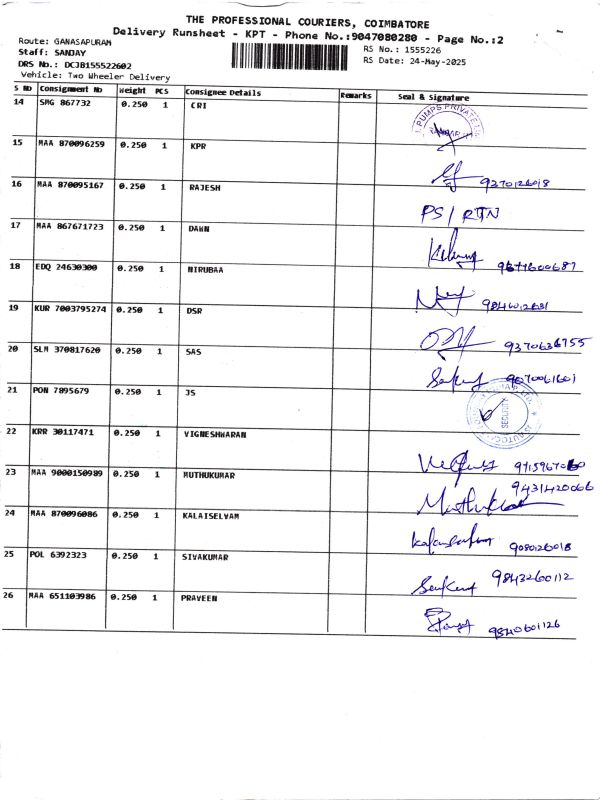 THE PROFESSIONAL COURIERS, COIMBATORE
Delivery Runsheet - KPT - Phone No.:9047080280 - Page No.:2
Route: GANASAPURAM
RS No.: 1555226
Staff: SANJAY
RS Date: 24-May-2025
DRS No.: DCJB155522602
Vehicle: Two Wheeler Delivery
S No Consignment No Weight PCS Consignee Details Remarks Seal & Signature
14 SMG 867732 0.250 1 CRI
PUMPS PRIVATE
15 MAA 870096259 0.250 1 KPR
9270126018
16 MAA 870095167 0.250 1 RAJESH
PS / RTN
17 MAA 867671723 0.250 1 DAWN
18 EDQ 24630300 0.250 1 NIRUBAA
19 KUR 7003795274 0.250 1 DSR
20 SLM 370817620 0.250 1 SAS
21 PON 7895679 0.250 1 JS
SECURITY
22 KRR 30117471 0.250 1 VIGNESHWARAN
23 MAA 9000150989 0.250 1 MUTHUKUMAR
9431420066
24 MAA 870096086 0.250 1 KALAISELVAM
9080126018
25 POL 6392323 0.250 1 SIVAKUMAR
9843260112
26 MAA 651103986 0.250 1 PRAVEEN
9840601126